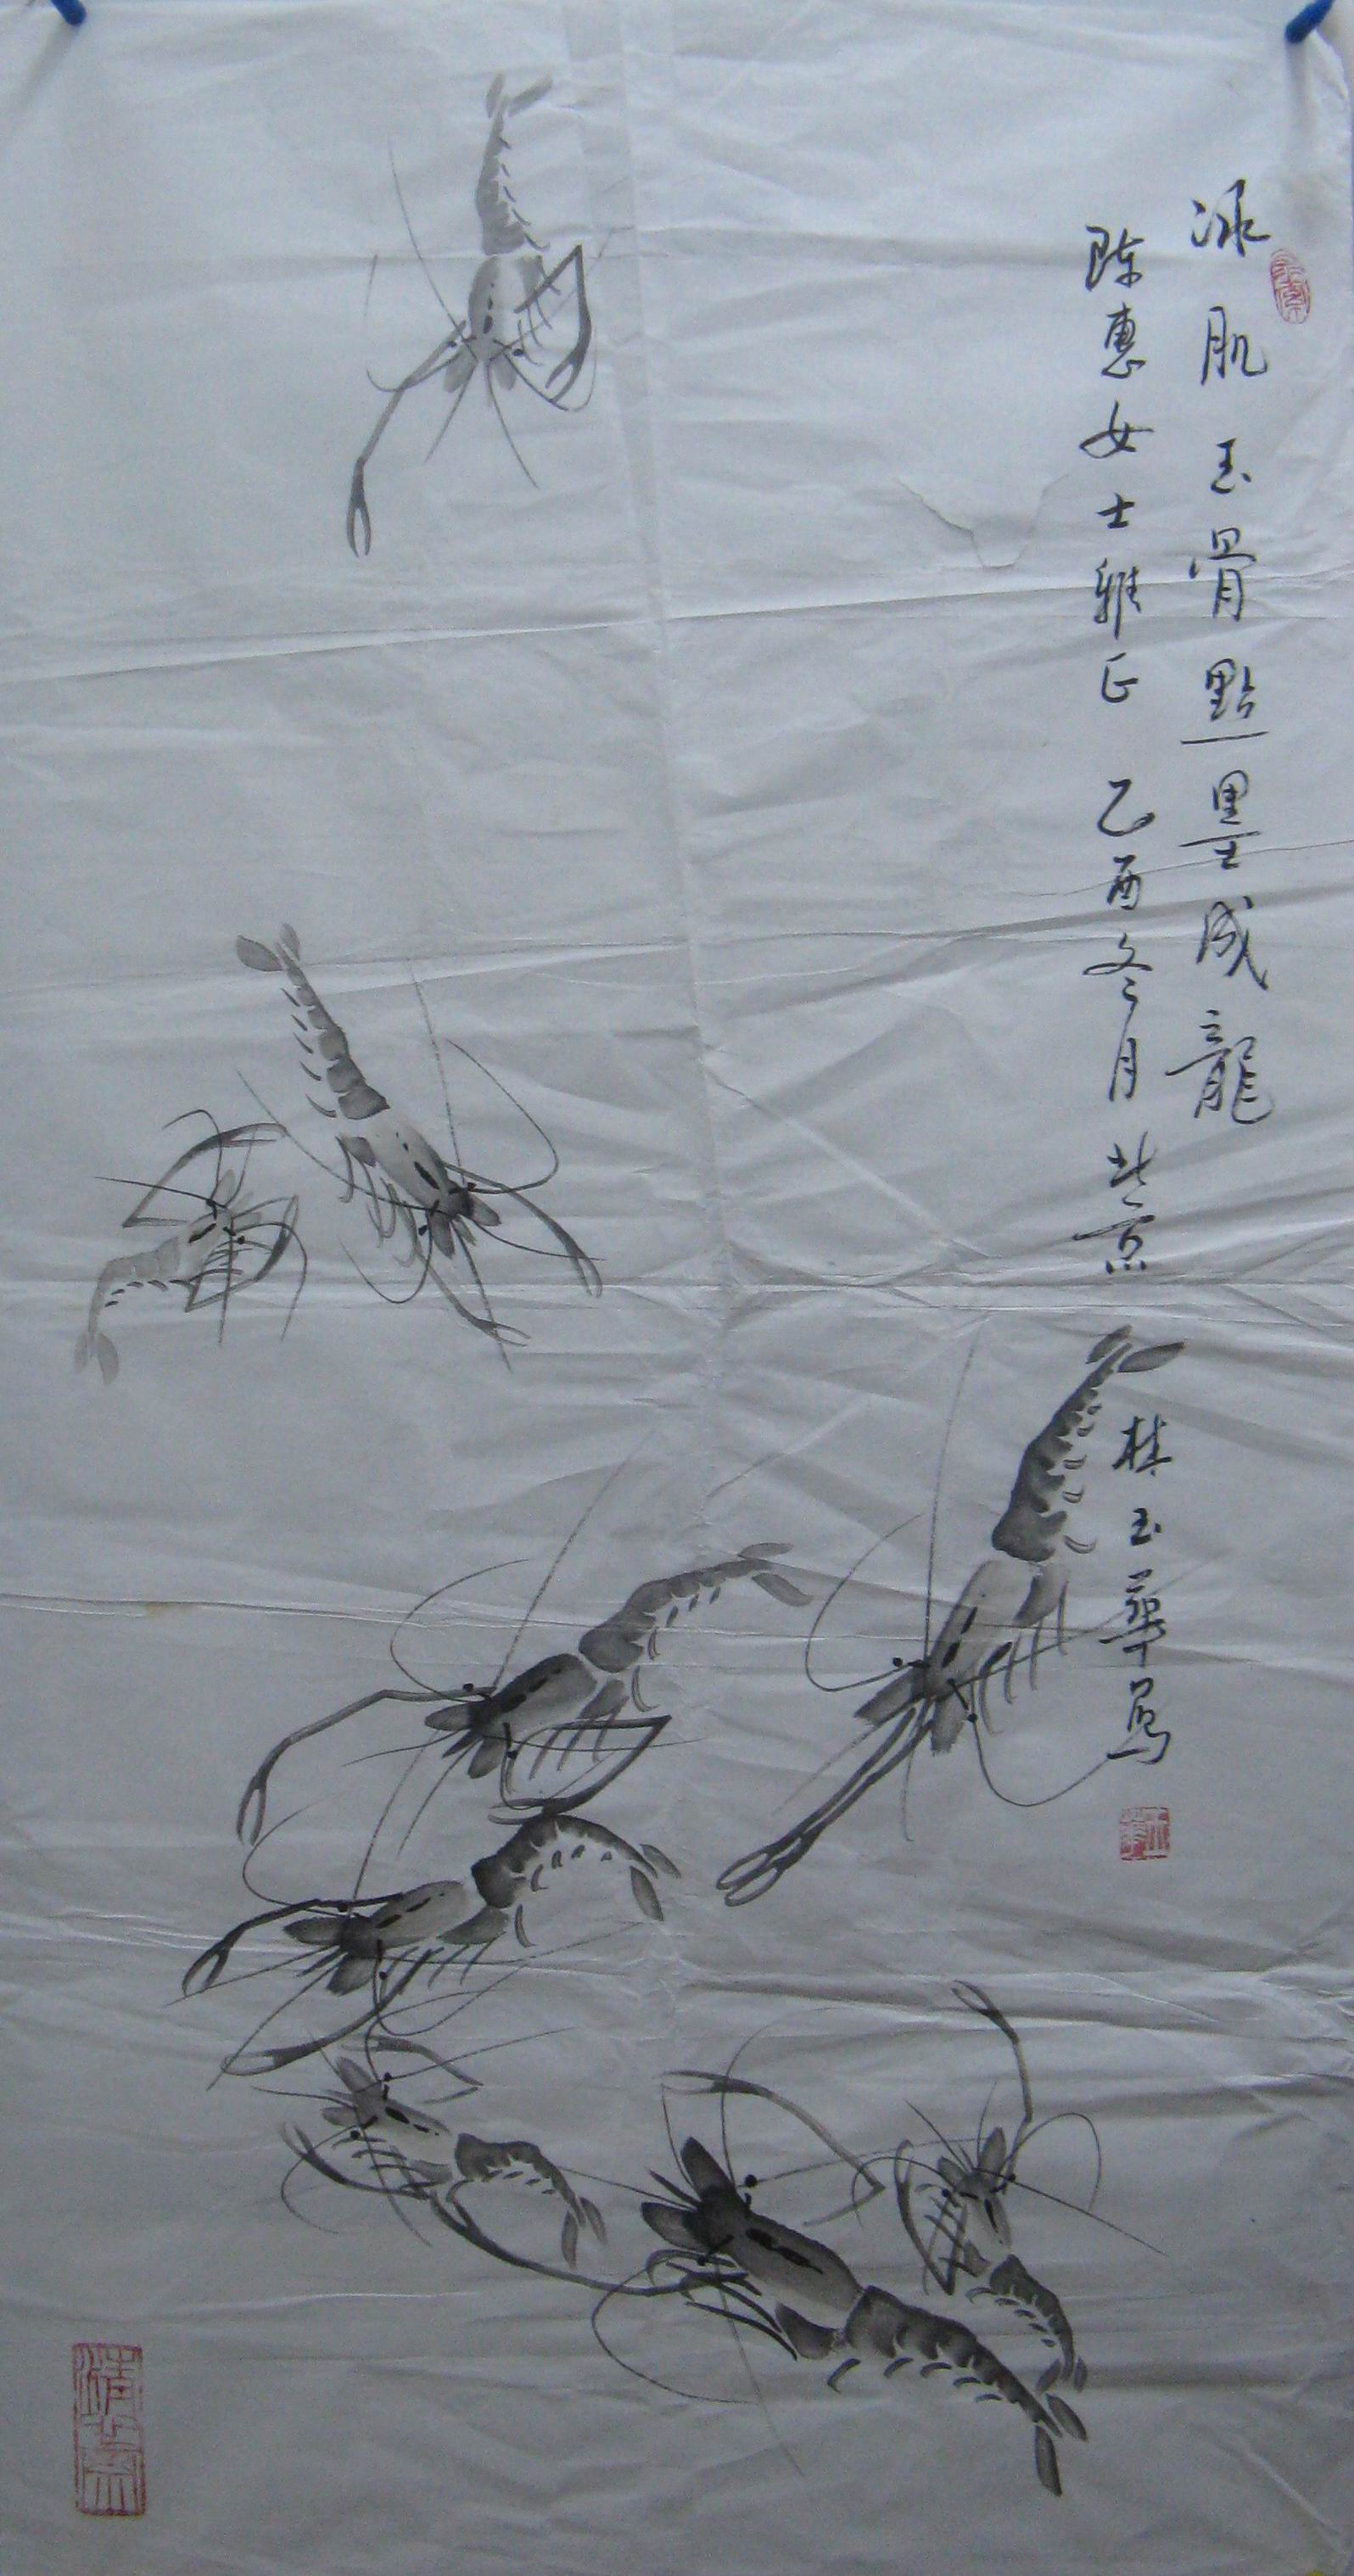 冰肌玉骨點墨成龍
陈惠女士雅正 乙酉冬月 北京
林玉華写